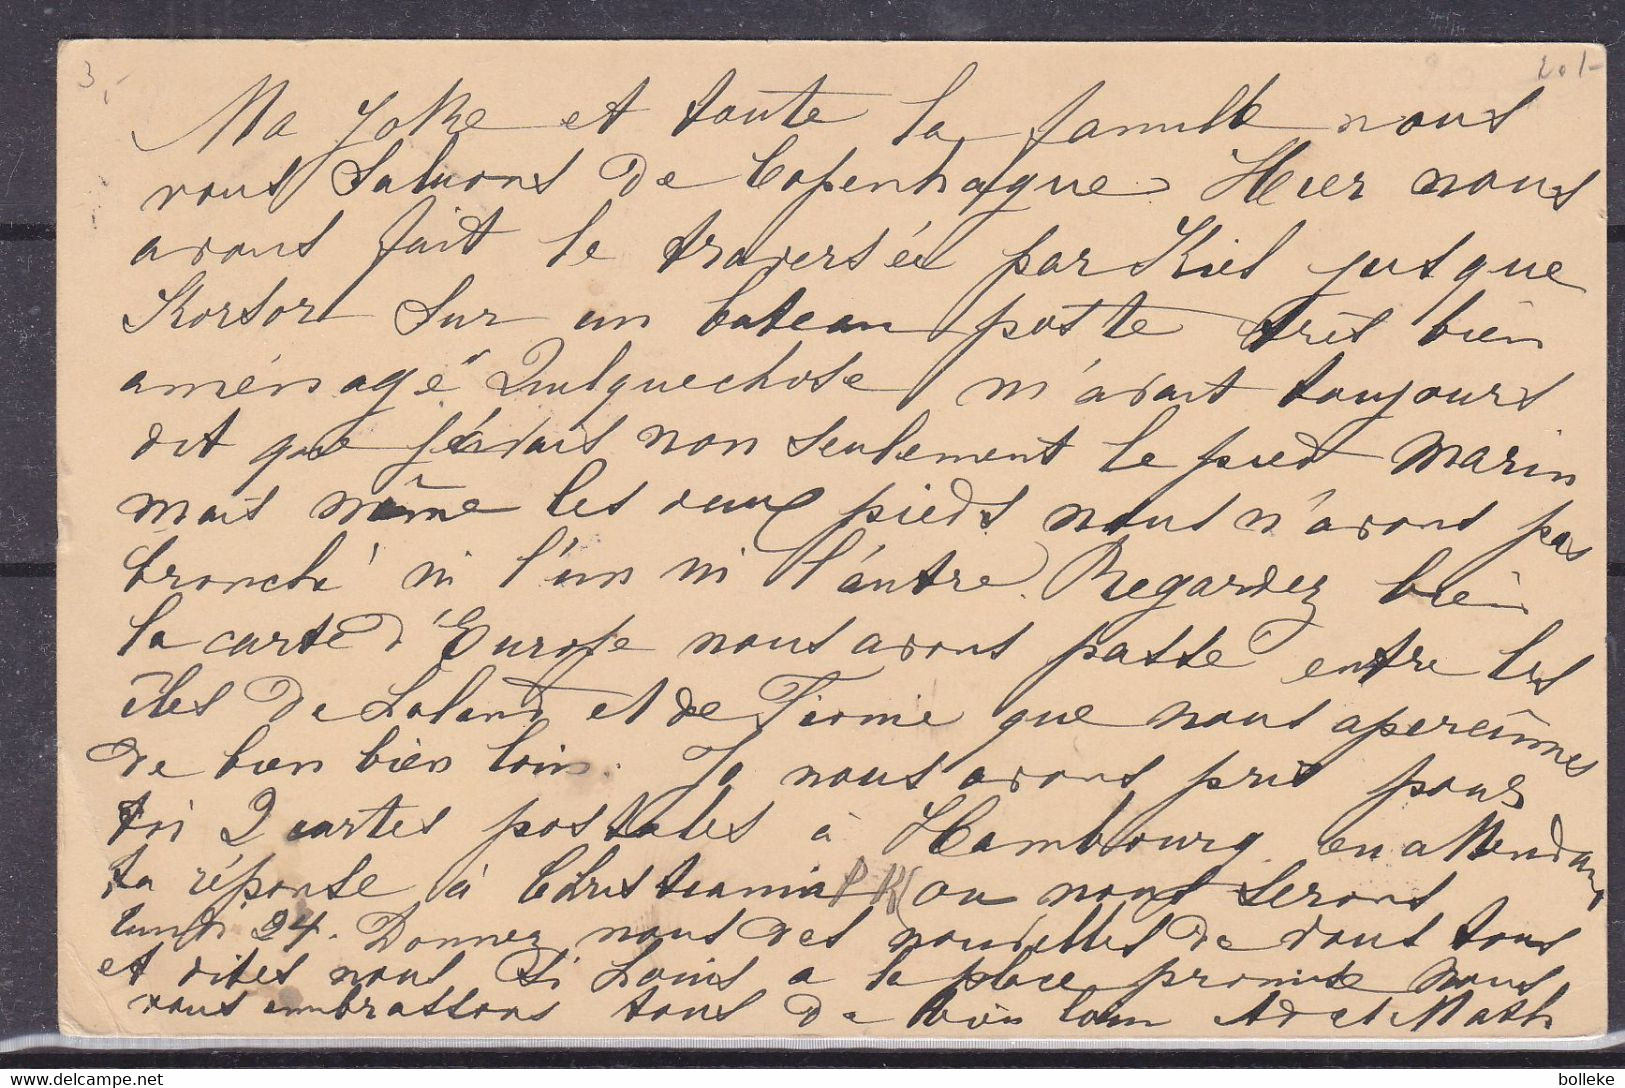 3,-
20,-
Ma Joke et toute la famille nous
vous saluons de Copenhague Hier nous
avons fait le traversée par Kiel jusque
Korsor sur un bateau poste très bien
aménagé Quelquechose m'avait toujours
dit que j'avais non seulement le pied marin
mais même les deux pieds nous n'avons pas
bronché ni l'un ni l'autre. Regardez bien
la carte d'Europe nous avons passé entre les
îles de Laland et de Fionie que nous aperçûmes
de bien bien loin. Jo nous avons pris pour
toi 2 cartes postales à Hambourg en attendant
ta réponse à Christiania PR( ou nous serons
lundi 24. Donnez nous des nouvelles de vous tous
et dites nous si Louis a la place promise Nous
vous embrassons tous de bien loin Ad et Math
bolleke